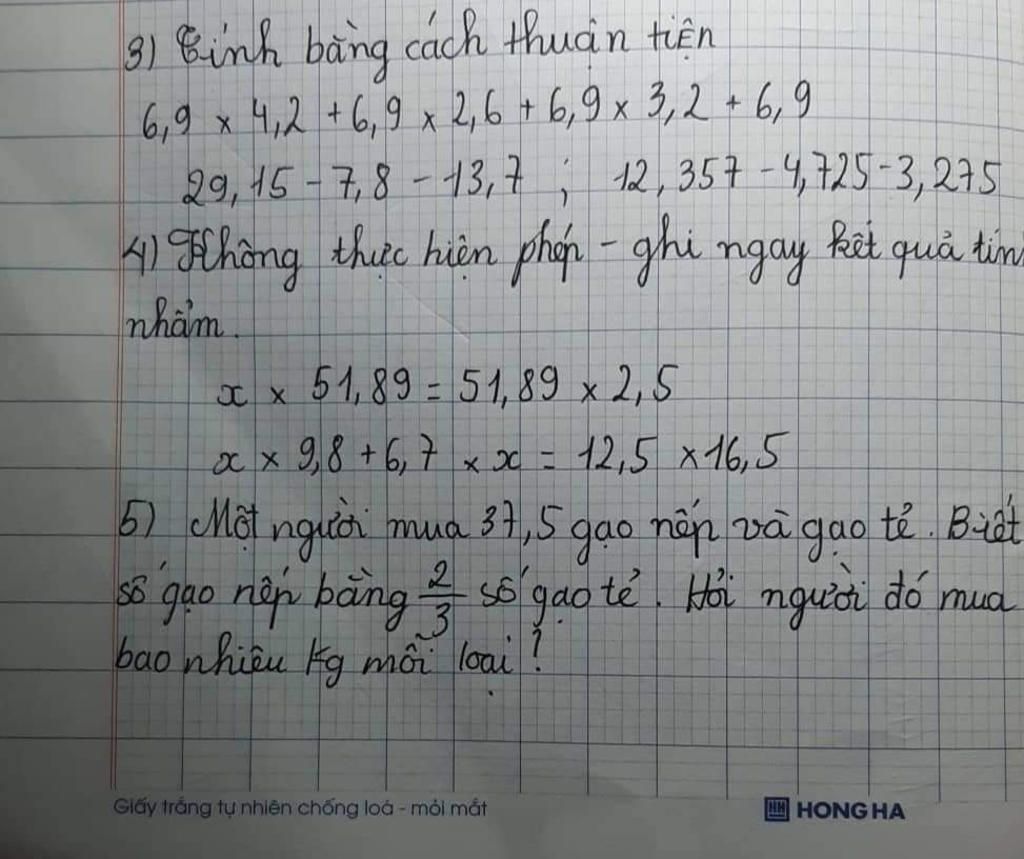 3) Tính bằng cách thuận tiện
6,9 × 4,2 + 6,9 × 2,6 + 6,9 × 3,2 + 6,9
29,15 - 7,8 - 13,7 ; 12,357 - 4,725 - 3,275
4) Không thực hiện phép - ghi ngay kết quả tín
nhẩm.
x × 51,89 = 51,89 × 2,5
x × 9,8 + 6,7 × x = 12,5 × 16,5
5) Một người mua 37,5 gạo nếp và gạo tẻ. Biết
số gạo nếp bằng 2/3 số gạo tẻ. Hỏi người đó mua
bao nhiêu kg mỗi loại?
Giấy trắng tự nhiên chống loá - mỏi mắt
HH HONG HA